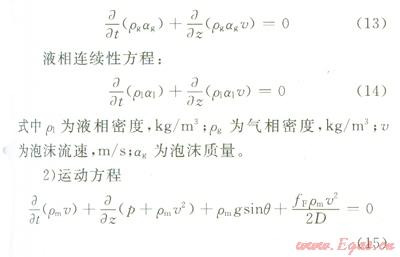 ∂/∂t(ρgαg)+∂/∂z(ρgαgv)=0 (13)
液相连续性方程:
∂/∂t(ρlαl)+∂/∂z(ρlαlv)=0 (14)
式中ρl为液相密度,kg/m³;ρg为气相密度,kg/m³;v
为泡沫流速,m/s;αg为泡沫质量。
2)运动方程
∂/∂t(ρmv)+∂/∂z(p+ρmv²)+ρmgsinθ+fFρmv²/2D=0
(15)